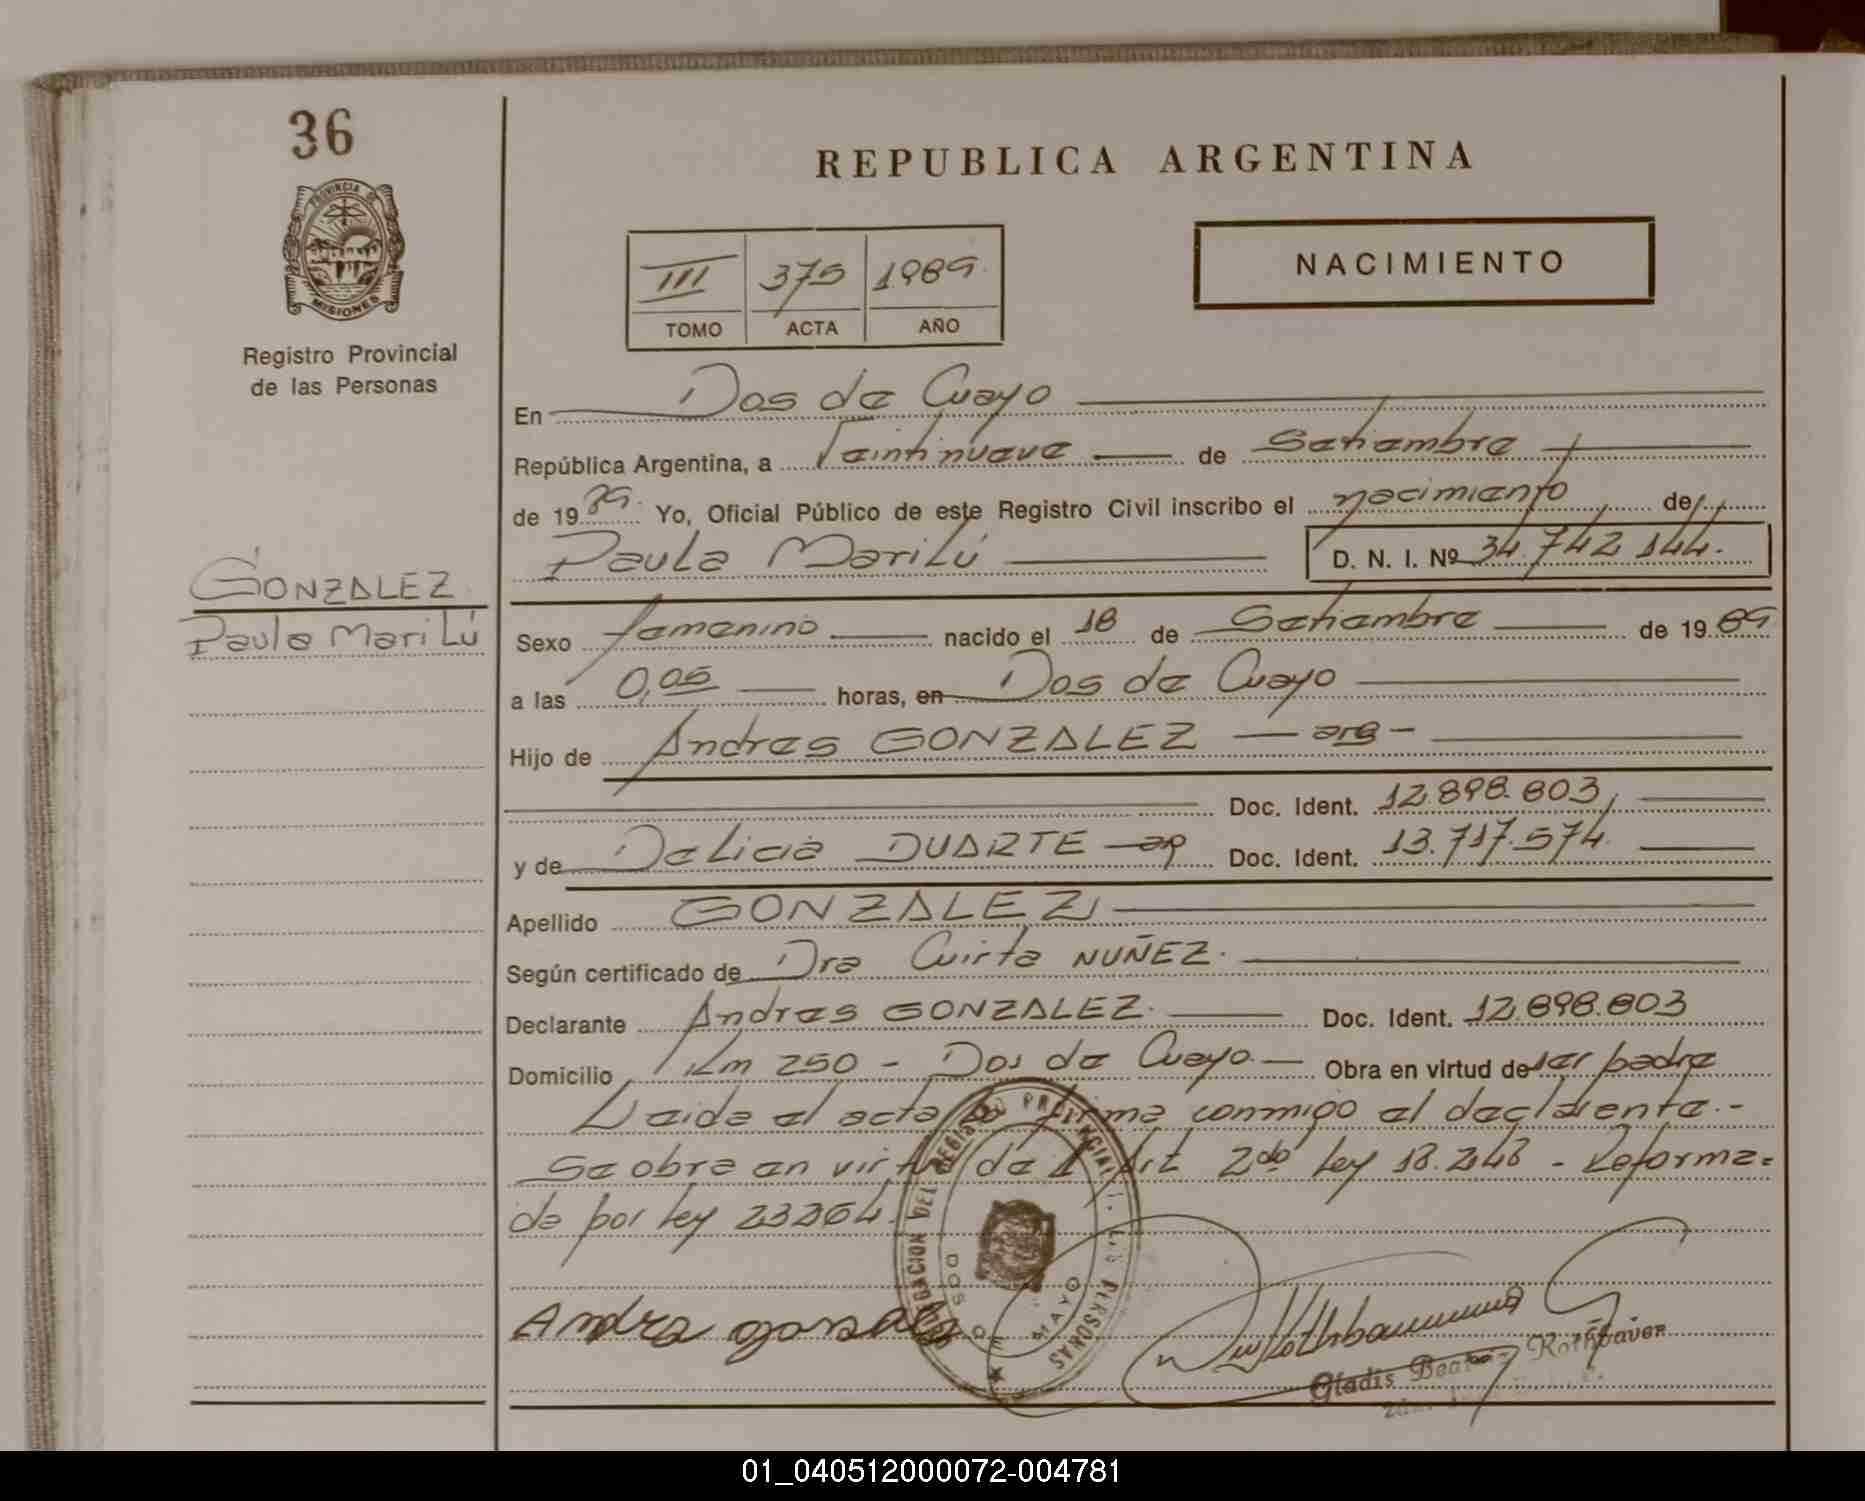 36
PROVINCIA DE
MISIONES
Registro Provincial
de las Personas
GONZALEZ
Paula MariLú
REPUBLICA ARGENTINA
NACIMIENTO
III 375 1989
TOMO ACTA AÑO
En Dos de Mayo
República Argentina, a Veintinueve de Setiembre
de 1989. Yo, Oficial Público de este Registro Civil inscribo el nacimiento de
Paula MariLú D. N. I. Nº 34.742.144.
Sexo femenino nacido el 18 de Setiembre de 1989
a las 0,05 horas, en Dos de Mayo
Hijo de Andres GONZALEZ — arg -
Doc. Ident. 12.898.803,
y de DeLicia DUARTE Doc. Ident. 13.717.574.
Apellido GONZALEZ
Según certificado de Dra NUÑEZ.
Declarante Andres GONZALEZ. Doc. Ident. 12.898.803
Domicilio Km 250 - Dos de Mayo. Obra en virtud de ser padre
Leida el acta la firma conmigo el declarente.-
Se obra en virtud del Art 2do Ley 18.248 - Reforma=
da por Ley 23264.
DELEGACION DEL REGISTRO PROVINCIAL DE LAS PERSONAS
DOS DE MAYO
Gladis Beatriz Rothbauer
01_040512000072-004781